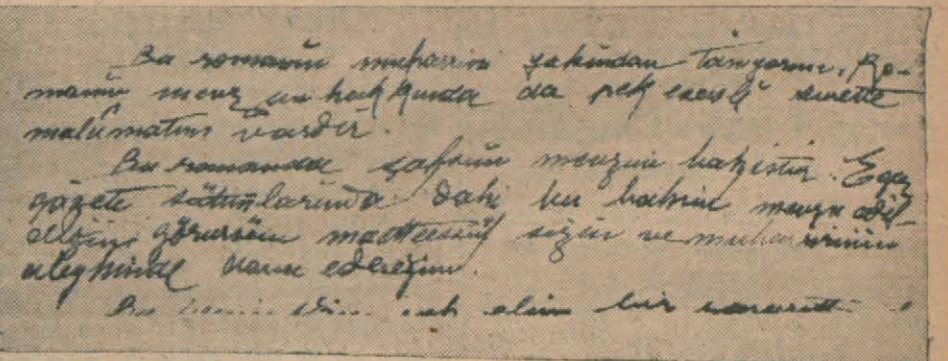 Bu romanın muharrini yakından tanıyorum. Ro-
manın mevzuu hakkında da pek esaslı surette
malûmatım vardır.
Bu romanda şahsım mevzuu bahistir. Eğer
gazete sütunlarında dahi bu bahsin mevzu edil-
diğini görürsem sizin ve muharririnin
aleyhinde dava edeceğim.
Bu elim bir